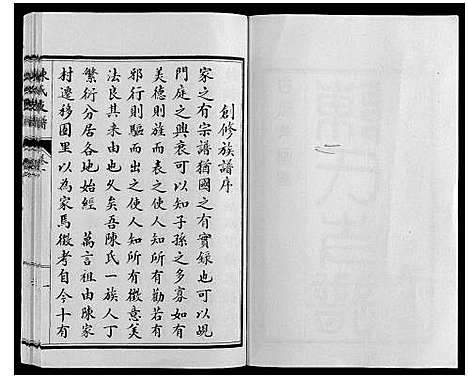 創修族譜序
家之有宗譜猶國之有實錄也可以覘
門庭之興衰可以知子孫之多寡如有
美德則族而表之使人知所有勸若有
邪行則驅而出之使人知所有徵意美
法良其来由也久矣吾陳氏一族人丁
繁衍分居各地始經 萬言祖由陳家
村遷移圈里以為家焉徵考自今十有
陳氏族譜
一